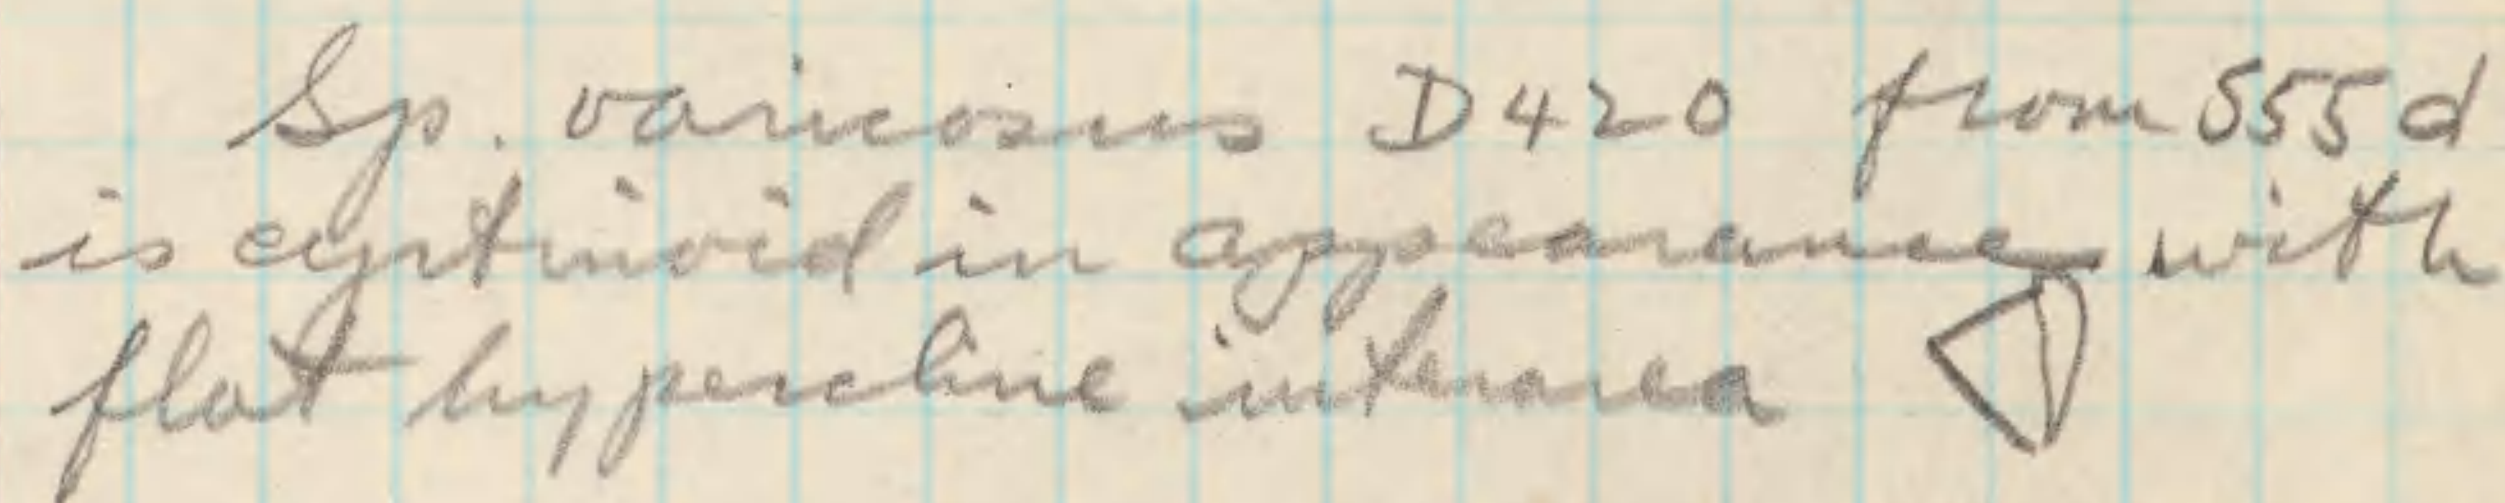 Sp. varicosus D420 from 555d
is cyrtinoid in appearance with
flat hypercline interarea